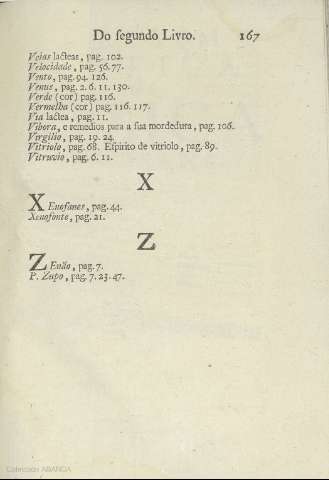 Do segundo Livro. 167
Veias lacteas, pag. 102.
Velocidade, pag. 56. 77.
Vento, pag. 94. 126.
Venus, pag. 2. 6. 11. 130.
Verde (cor) pag. 116.
Vermelha (cor) pag. 116. 117.
Via lactea, pag. 11.
Vibora, e remedios para a sua mordedura, pag. 106.
Virgilio, pag. 19. 24.
Vitriolo, pag. 68. Espirito de vitriolo, pag. 89.
Vitruvio, pag. 6. 11.
X
XEnofanes, pag. 44.
Xenofonte, pag. 21.
Z
ZEnão, pag. 7.
P. Zupo, pag. 7. 23. 47.
Colección ABANCA